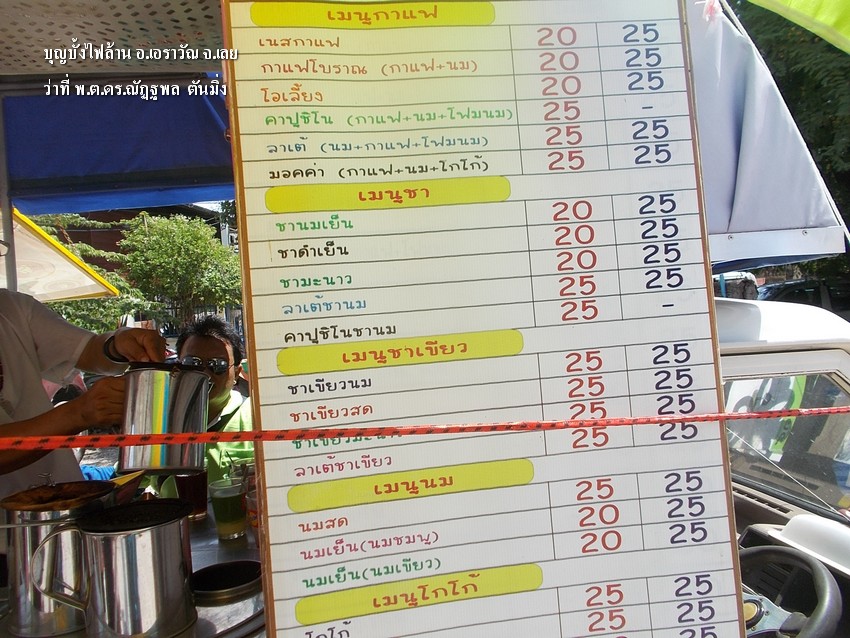 บุญบั้งไฟล้าน อ.เอราวัณ จ.เลย
ว่าที่ พ.ต.ดร.ณัฏฐพล ตันมิ่ง
เมนูกาแฟ
เนสกาแฟ 20 25
กาแฟโบราณ (กาแฟ+นม) 20 25
โอเลี้ยง 20 25
คาปูชิโน (กาแฟ+นม+โฟมนม) 25 -
ลาเต้ (นม+กาแฟ+โฟมนม) 25 25
มอคค่า (กาแฟ+นม+โกโก้) 25 25
เมนูชา
ชานมเย็น 20 25
ชาดำเย็น 20 25
ชามะนาว 20 25
ลาเต้ชานม 25 25
คาปูชิโนชานม 25 -
เมนูชาเขียว
ชาเขียวนม 25 25
ชาเขียวสด 25 25
ชาเขียวมะนาว 25 25
ลาเต้ชาเขียว 25 25
เมนูนม
นมสด 25 25
นมเย็น(นมชมพู) 20 25
นมเย็น(นมเขียว) 20 25
เมนูโกโก้
โกโก้ 25 25
25 25